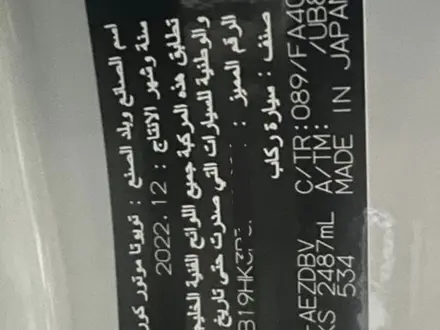 اسم الصانع وبلد الصنع : تويوتا موتور كور
سنة وشهر الانتاج : 2022.12
تطبق هذه المركبة جميع اللوائح الفنية الخليج
والوطنية للسيارات التي صدرت حتى تاريخ
الرقم المميز : B19HK3
صنف : سيارة ركاب
AEZDBV C/TR:089/FA40
KS 2487mL A/TM: /UB8
534 MADE IN JAPAN